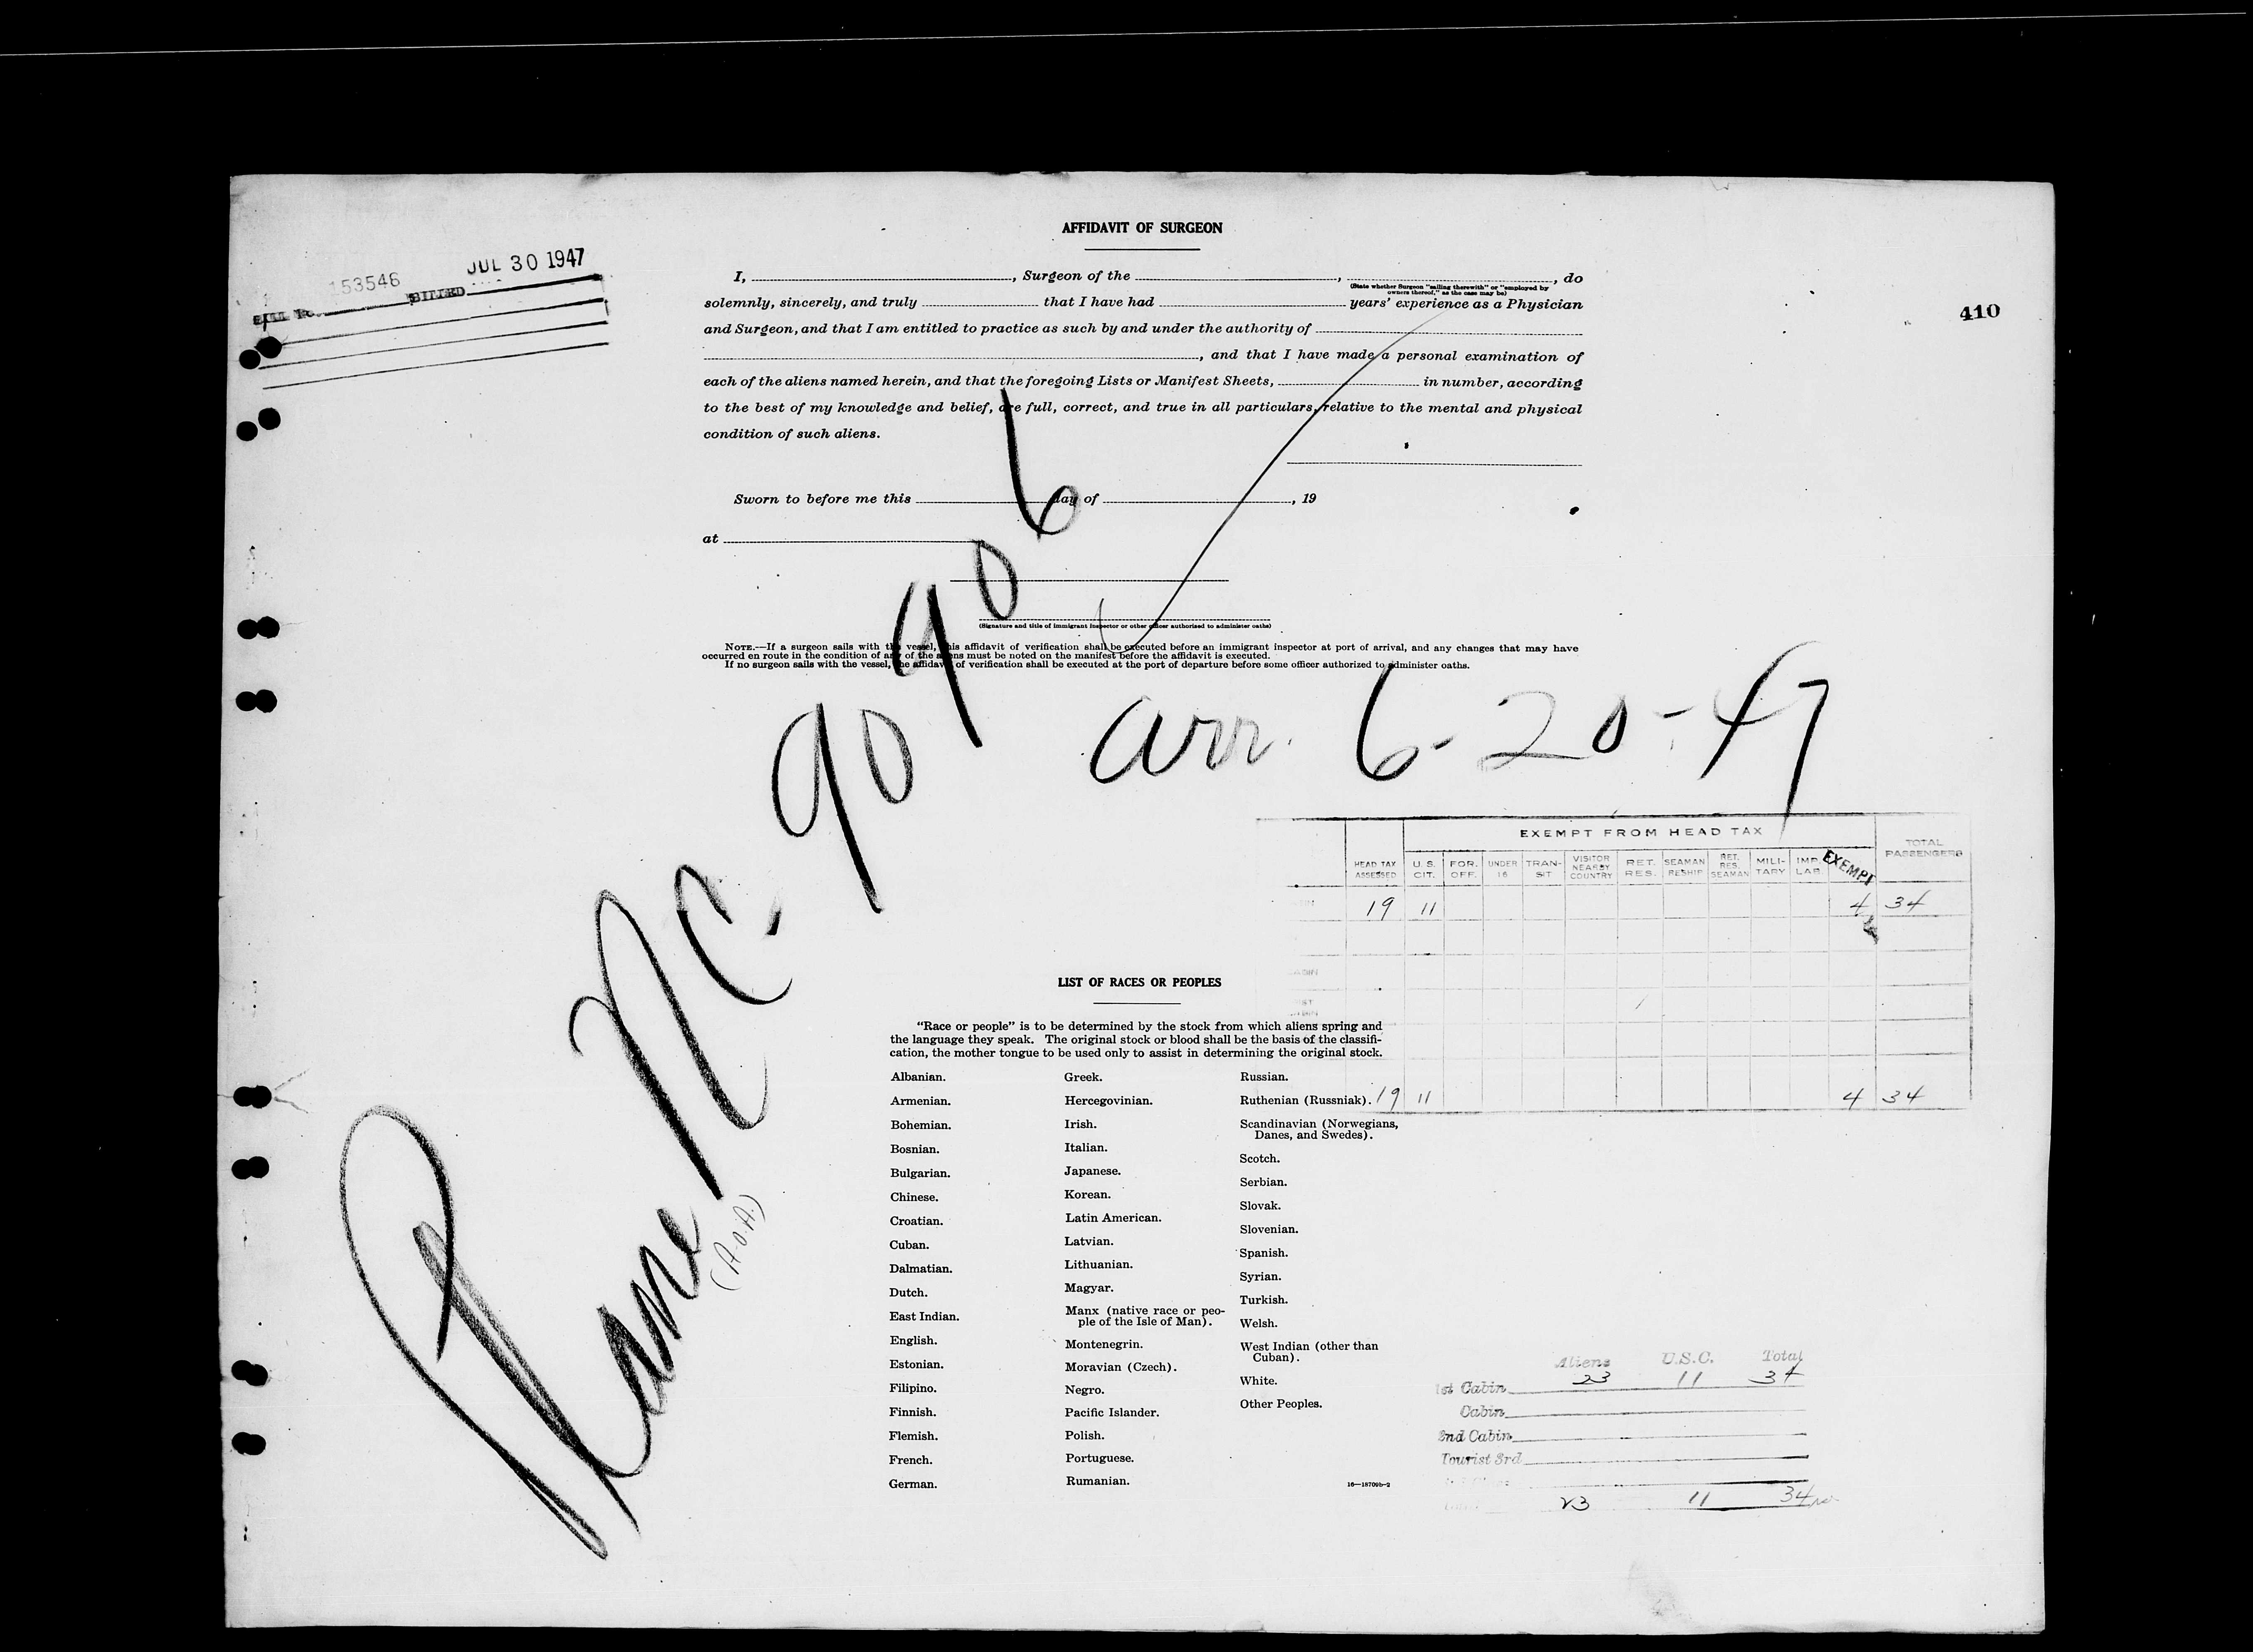 AFFIDAVIT OF SURGEON
153546 JUL 30 1947
BILL No. BILLED
410
I, , Surgeon of the , , do
(State whether Surgeon "sailing therewith" or "employed by
owners thereof," as the case may be)
solemnly, sincerely, and truly that I have had years' experience as a Physician
and Surgeon, and that I am entitled to practice as such by and under the authority of
, and that I have made a personal examination of
each of the aliens named herein, and that the foregoing Lists or Manifest Sheets, in number, according
to the best of my knowledge and belief, are full, correct, and true in all particulars, relative to the mental and physical
condition of such aliens.
Sworn to before me this day of , 19
at
(Signature and title of immigrant inspector or other officer authorized to administer oaths)
NOTE.—If a surgeon sails with the vessel, this affidavit of verification shall be executed before an immigrant inspector at port of arrival, and any changes that may have
occurred en route in the condition of any of the aliens must be noted on the manifest before the affidavit is executed.
If no surgeon sails with the vessel, the affidavit of verification shall be executed at the port of departure before some officer authorized to administer oaths.
Plane NC. 90906
(A.O.A.)
arr. 6-20-47
EXEMPT FROM HEAD TAX
HEAD TAX ASSESSED U.S. CIT. FOR. OFF. UNDER 16 TRANSIT VISITOR NEARBY COUNTRY RET. RES. SEAMAN RESHIP RET. RES. SEAMAN MILITARY IMP. LAB. EXEMPT TOTAL PASSENGERS
19 11 4 34
CABIN
19 11 4 34
LIST OF RACES OR PEOPLES
"Race or people" is to be determined by the stock from which aliens spring and
the language they speak. The original stock or blood shall be the basis of the classifi-
cation, the mother tongue to be used only to assist in determining the original stock.
Albanian.
Armenian.
Bohemian.
Bosnian.
Bulgarian.
Chinese.
Croatian.
Cuban.
Dalmatian.
Dutch.
East Indian.
English.
Estonian.
Filipino.
Finnish.
Flemish.
French.
German.
Greek.
Hercegovinian.
Irish.
Italian.
Japanese.
Korean.
Latin American.
Latvian.
Lithuanian.
Magyar.
Manx (native race or peo-
ple of the Isle of Man).
Montenegrin.
Moravian (Czech).
Negro.
Pacific Islander.
Polish.
Portuguese.
Rumanian.
Russian.
Ruthenian (Russniak).
Scandinavian (Norwegians,
Danes, and Swedes).
Scotch.
Serbian.
Slovak.
Slovenian.
Spanish.
Syrian.
Turkish.
Welsh.
West Indian (other than
Cuban).
White.
Other Peoples.
16—18709b-2
Aliens U.S.C. Total
1st Cabin 23 11 34
Cabin
2nd Cabin
Tourist 3rd
23 11 34